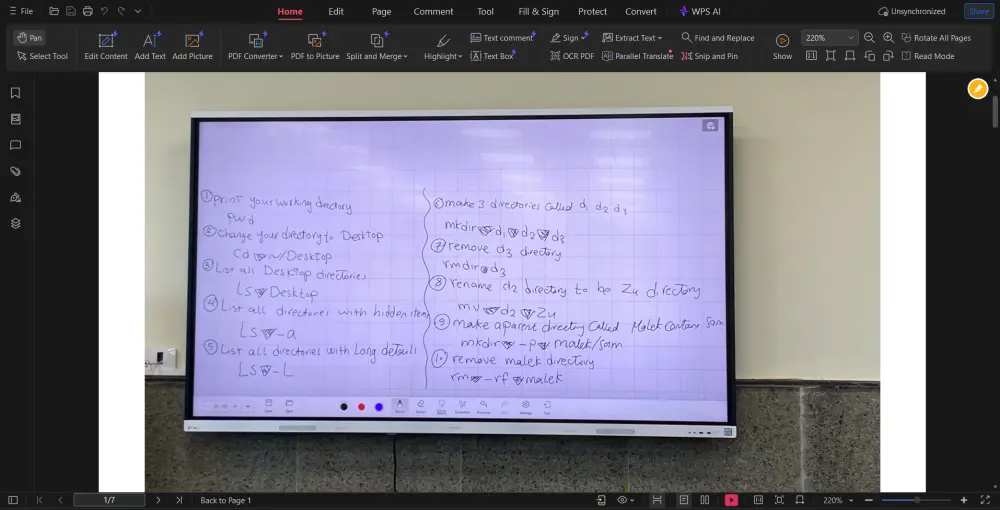 File
Home
Edit
Page
Comment
Tool
Fill & Sign
Protect
Convert
WPS AI
Unsynchronized
Share
Pan
Select Tool
Edit Content
Add Text
Add Picture
PDF Converter
PDF to Picture
Split and Merge
Highlight
Text comment
Text Box
Sign
OCR PDF
Extract Text
Parallel Translate
Find and Replace
Snip and Pin
Show
220%
Rotate All Pages
Read Mode
① print your working directory
pwd
② Change your directory to Desktop
Cd ~/Desktop
③ List all Desktop directories
Ls Desktop
④ List all directories with hidden items
Ls -a
⑤ List all directories with Long details
Ls -L
⑥ make 3 directories Called d1 d2 d3
mkdir d1 d2 d3
⑦ remove d3 directory
rmdir d3
⑧ rename d2 directory to be Zu directory
mv d2 Zu
⑨ make a parent directory Called Malek Contans Sam
mkdir -p malek/sam
⑩ remove malek directory
rm -rf malek
1/7
Back to Page 1
220%